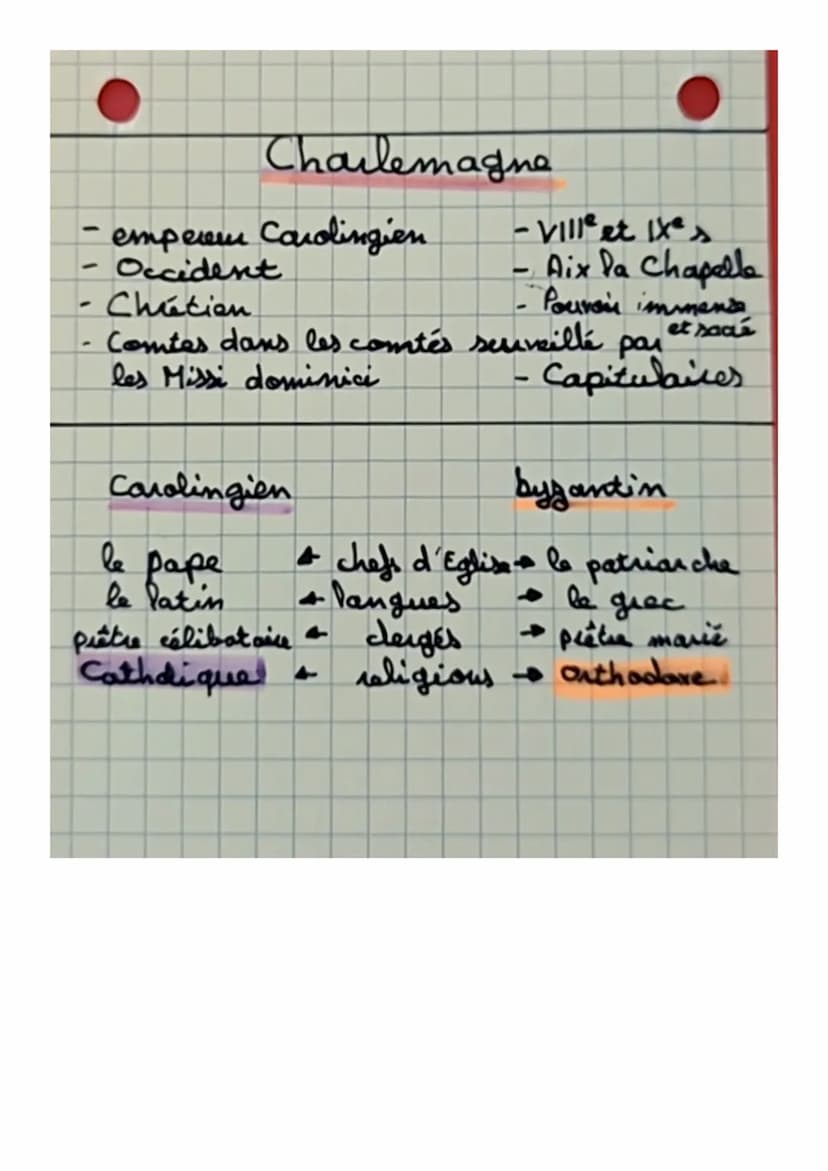 Charlemagne
- empereur Carolingien - VIIIe et IXe s
- Occident - Aix la Chapelle
- Chrétien - Pouvoir immense et sacré
- Comtes dans les comtés surveillé par
les Missi dominici - Capitulaires
Carolingien byzantin
le pape ← chefs d'Eglise → le patriarche
le latin ← langues → le grec
prêtre célibataire ← clergés → prêtre marié
Catholique ← religions → Orthodoxe